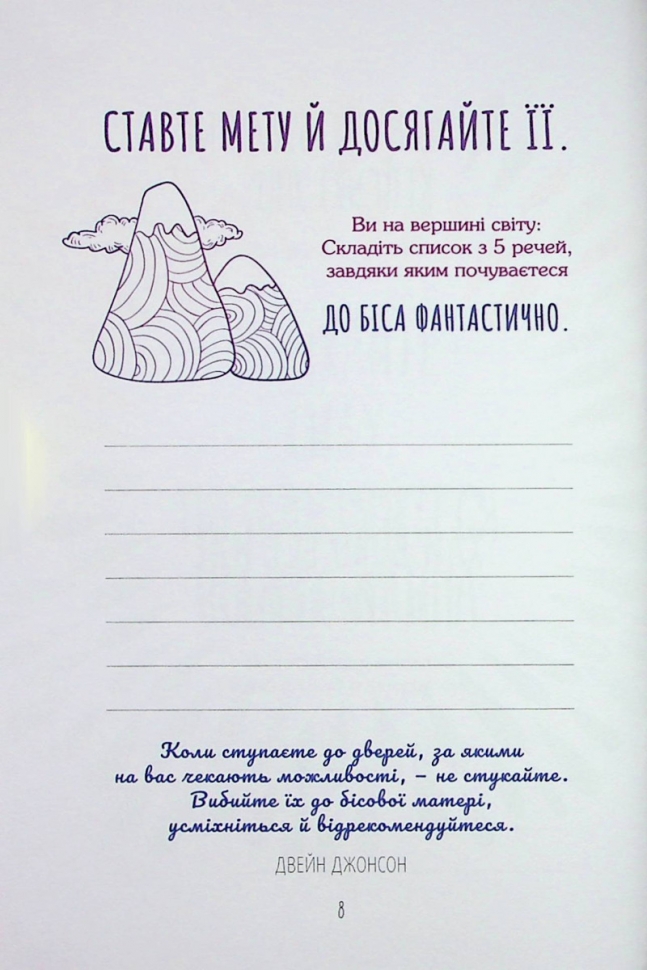 СТАВТЕ МЕТУ Й ДОСЯГАЙТЕ ЇЇ.
Ви на вершині світу:
Складіть список з 5 речей,
завдяки яким почуваєтеся
ДО БІСА ФАНТАСТИЧНО.
Коли ступаєте до дверей, за якими
на вас чекають можливості, – не стукайте.
Вибийте їх до бісової матері,
усміхніться й відрекомендуйтеся.
ДВЕЙН ДЖОНСОН
8